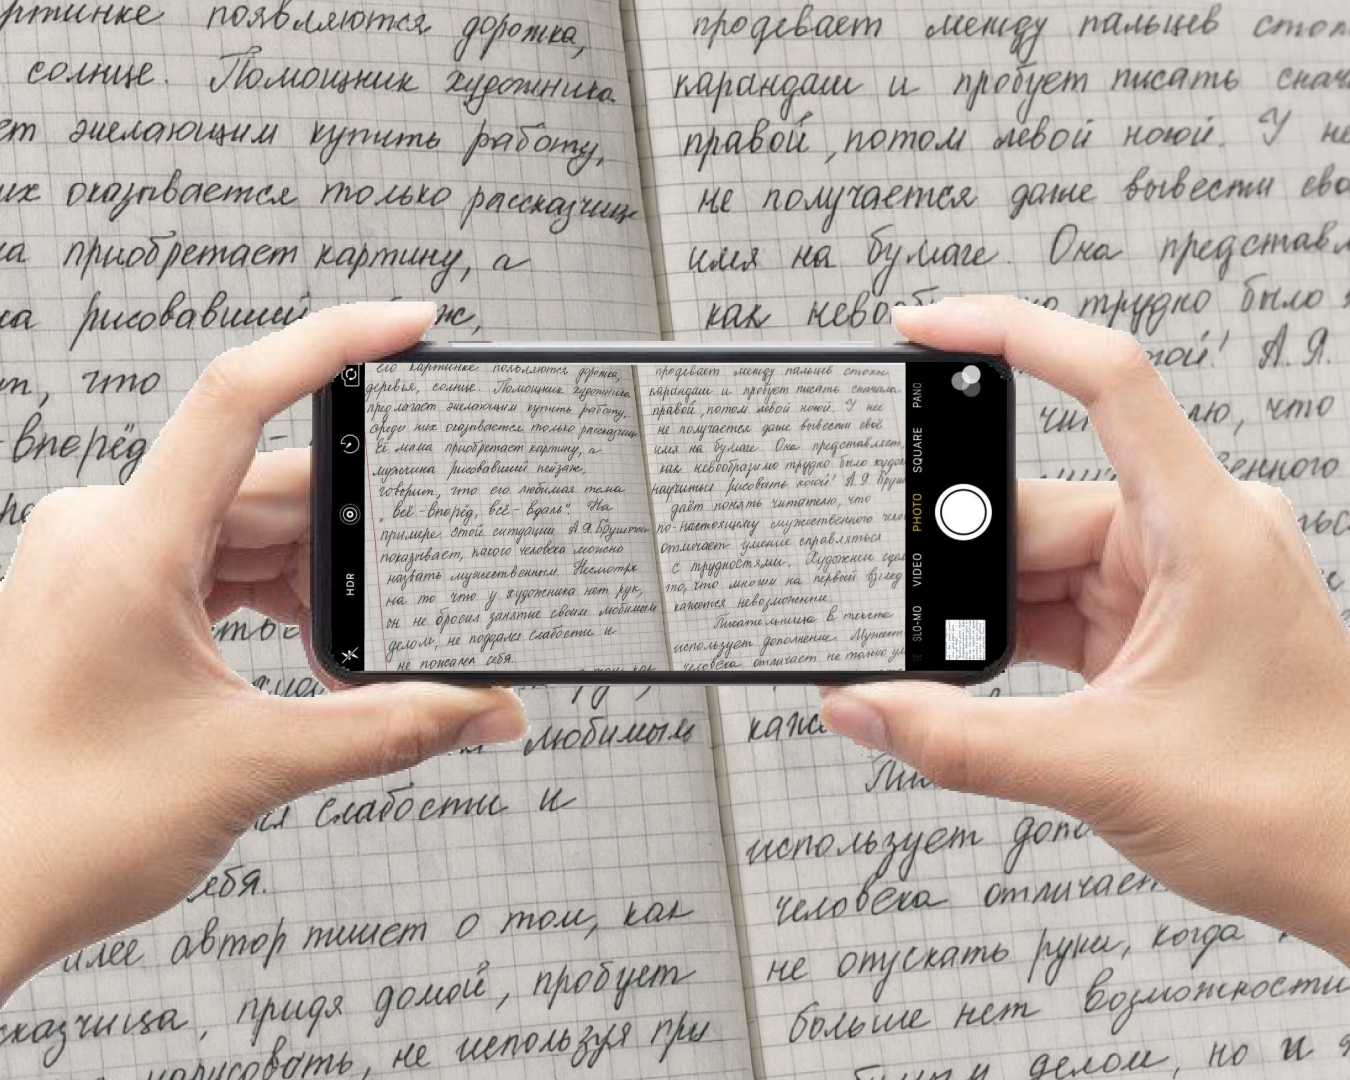 картинке появляются дорожка,
солнце. Помощник художника
ет желающим купить работу,
их оказывается только рассказчице
ма приобретает картину, а
на рисовавший ж,
что
-вперёд
любимым
слабости и
себя.
Далее автор пишет о том, как
рассказчица, придя домой, пробует
нарисовать, не используя при
продевает между пальцев стоп
карандаш и пробует писать снач
правой, потом левой ногой. У не
не получается даже вывести сво
имя на бумаге. Она представл
как нево трудно было
ногой! А.Я.
чи лю, что
енного
каже
Пи
использует доп
человека отличает
не опускать руки, когда
больше нет возможности
делом, но и
его картинке появляются дорожка,
деревья, солнце. Помощник художника
предлагает желающим купить работу,
среди них оказывается только рассказчице
Её мама приобретает картину, а
мужчина рисовавший пейзаж,
говорит, что его любимая тема
„ всё-вперёд, всё-вдаль". На
примере этой ситуации А.Я.Бруште
показывает, какого человека можно
назвать мужественным. Несмотря
на то что у художника нет рук,
он не бросил занятие своим любимым
делом, не поддался слабости и
не пожалел себя.
продевает между пальцев стопы
карандаш и пробует писать сначала
правой, потом левой ногой. У неё
не получается даже вывести своё
имя на бумаге. Она представляет,
как невообразимо трудно было худож
научиться рисовать ногой! А.Я. Бруш
даёт понять читателю, что
по-настоящему мужественного чело
отличает умение справляться
с трудностями. Художник сдел
то, что многим на первый взгляд
кажется невозможным.
Писательница в тексте
использует дополнение. Мужест
человека отличает не только ум
HDR
PANO
SQUARE
PHOTO
VIDEO
SLO-MO